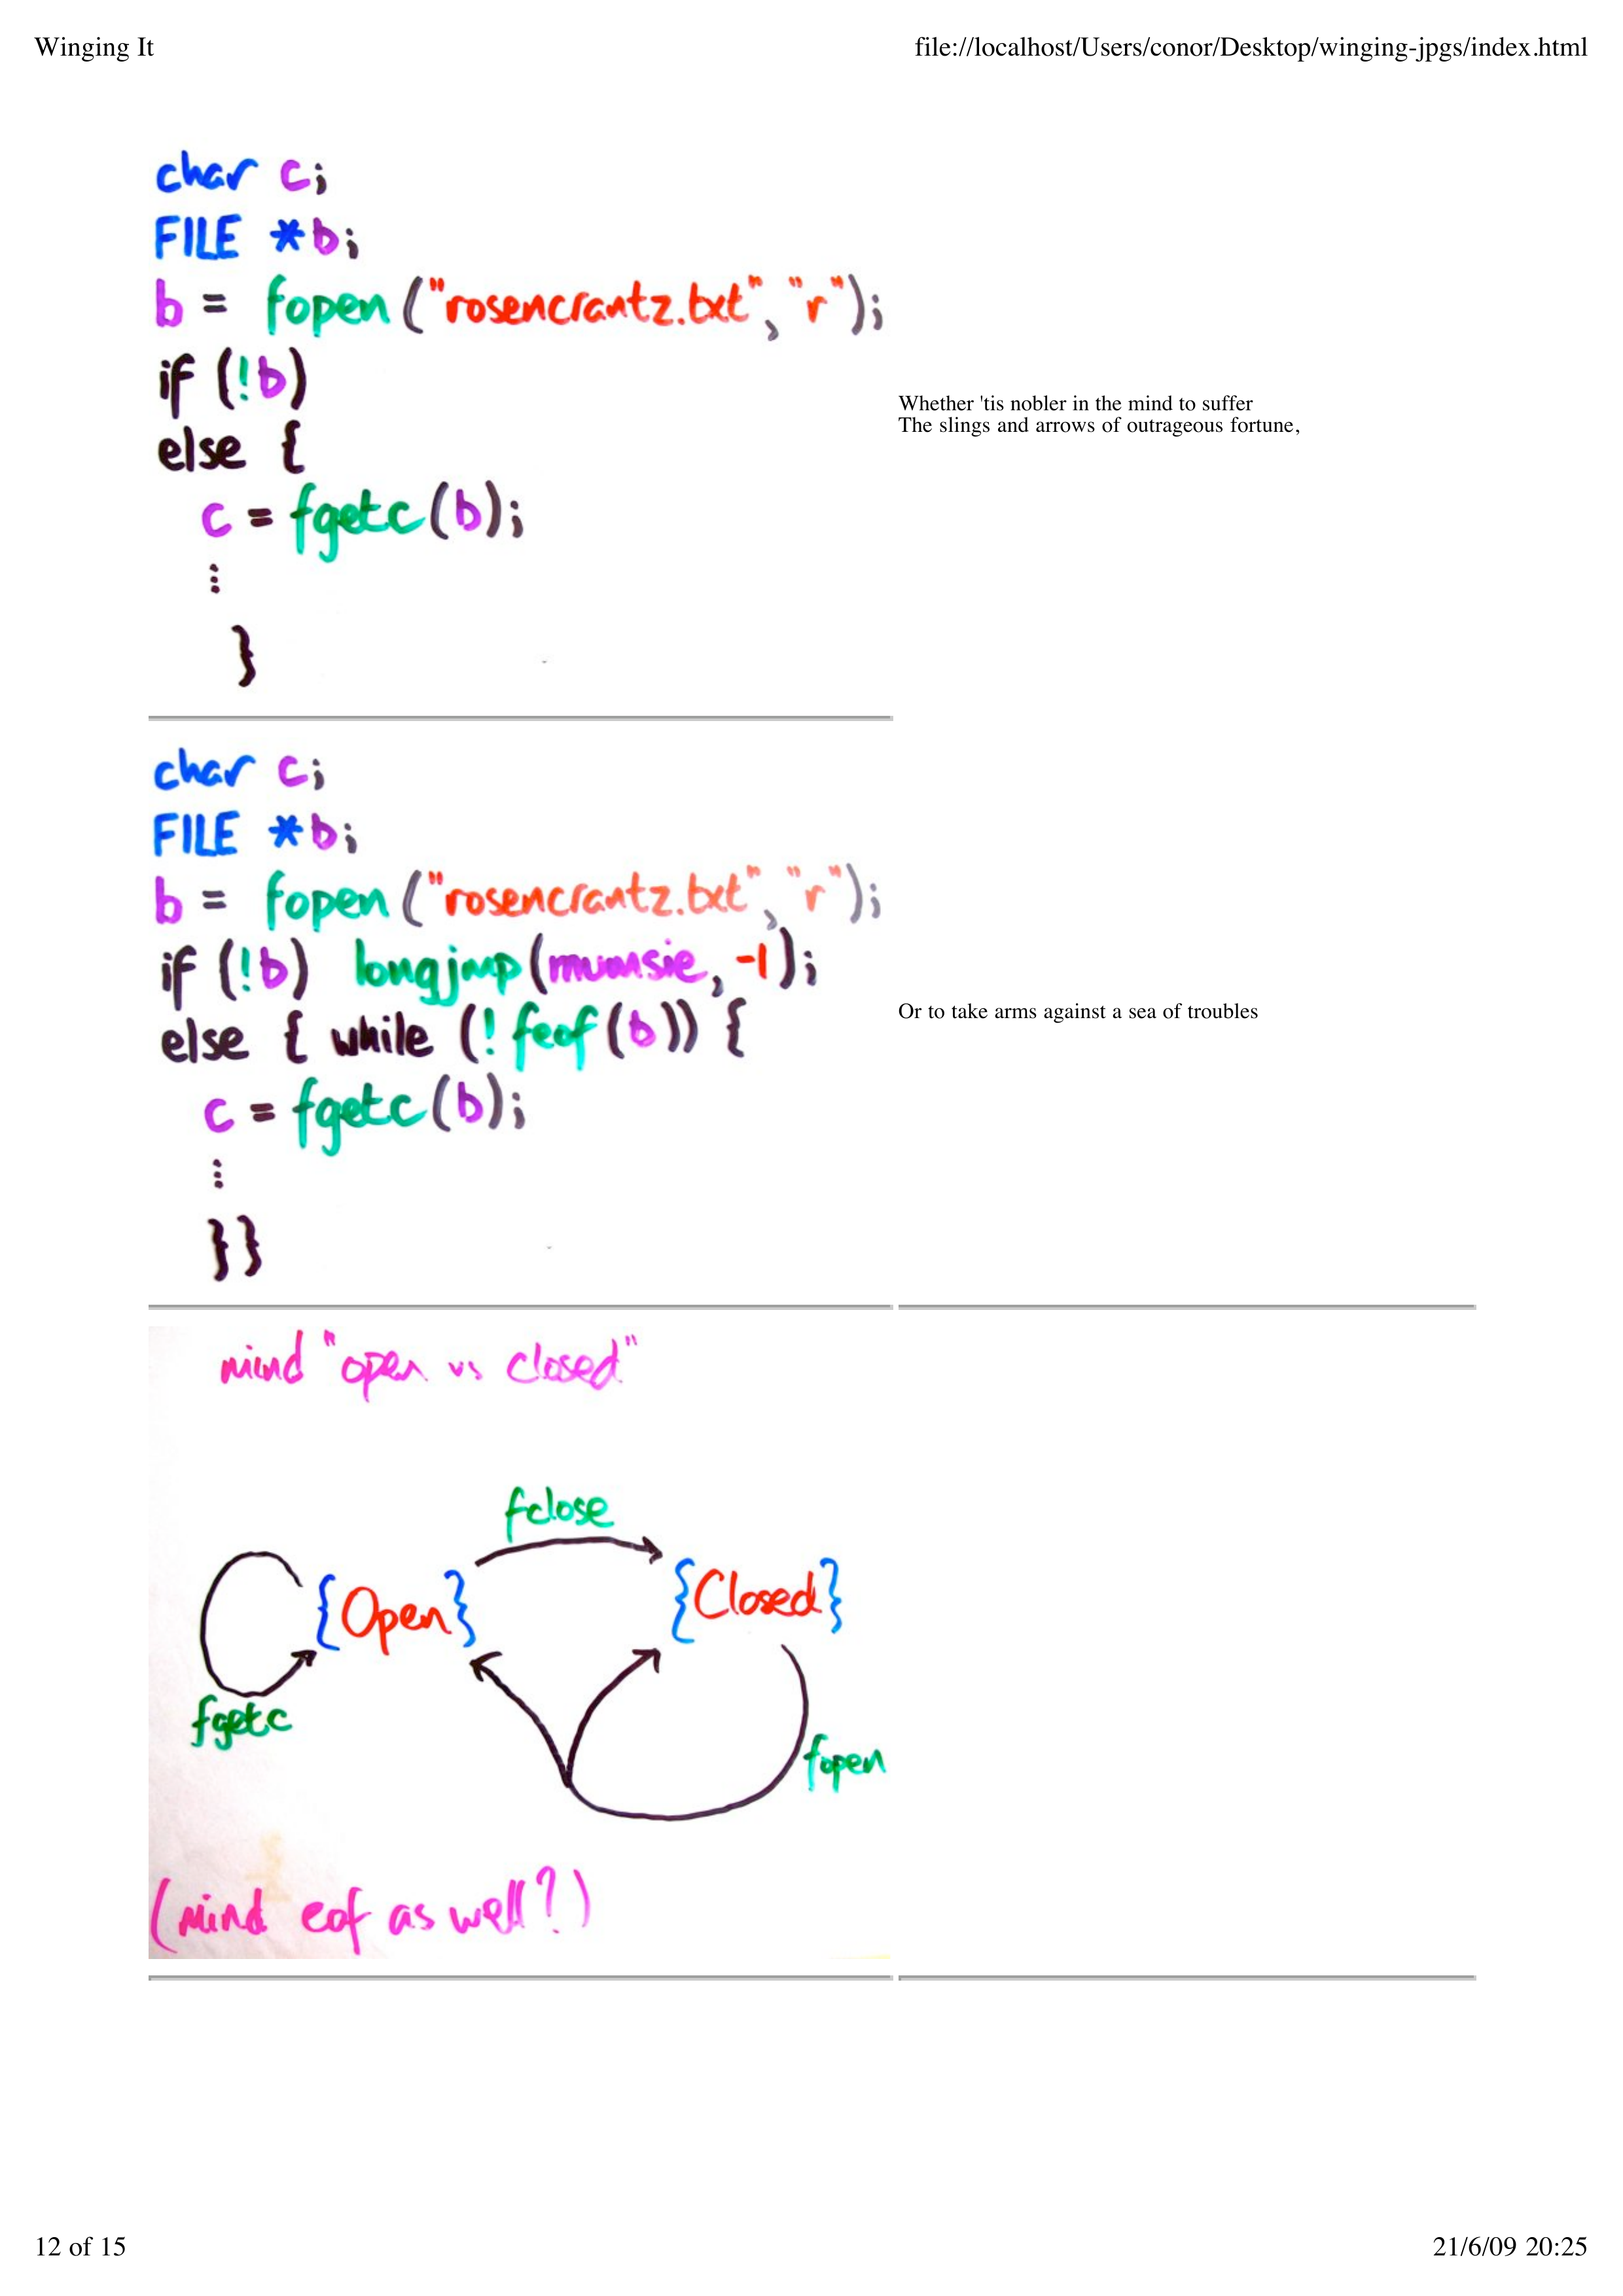 Winging It
file://localhost/Users/conor/Desktop/winging-jpgs/index.html
char c;
FILE *b;
b = fopen("rosencrantz.txt", "r");
if (!b)
else {
c = fgetc(b);
⋮
}
Whether 'tis nobler in the mind to suffer
The slings and arrows of outrageous fortune,
char c;
FILE *b;
b = fopen("rosencrantz.txt", "r");
if (!b) longjmp(mumsie, -1);
else { while (!feof(b)) {
c = fgetc(b);
⋮
}}
Or to take arms against a sea of troubles
mind "open vs closed"
fclose
{Open}
{Closed}
fgetc
fopen
(mind eof as well?)
12 of 15
21/6/09 20:25